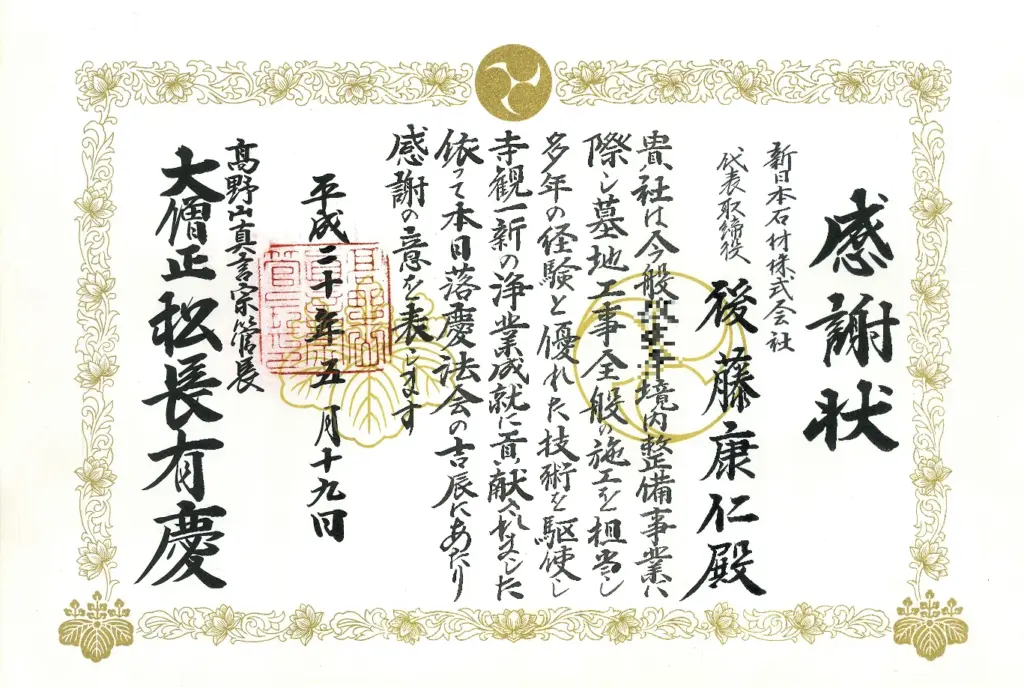 感謝状
新日本石材株式会社
代表取締役 後藤康仁殿
貴社は今般境内整備事業に
際し墓地工事全般の施工を担当し
多年の経験と優れた技術を駆使し
寺観一新の浄業成就に貢献されました
依って本日落慶法会の吉辰にあたり
感謝の意を表します
平成二十年五月十九日
高野山真言宗管長
大僧正松長有慶